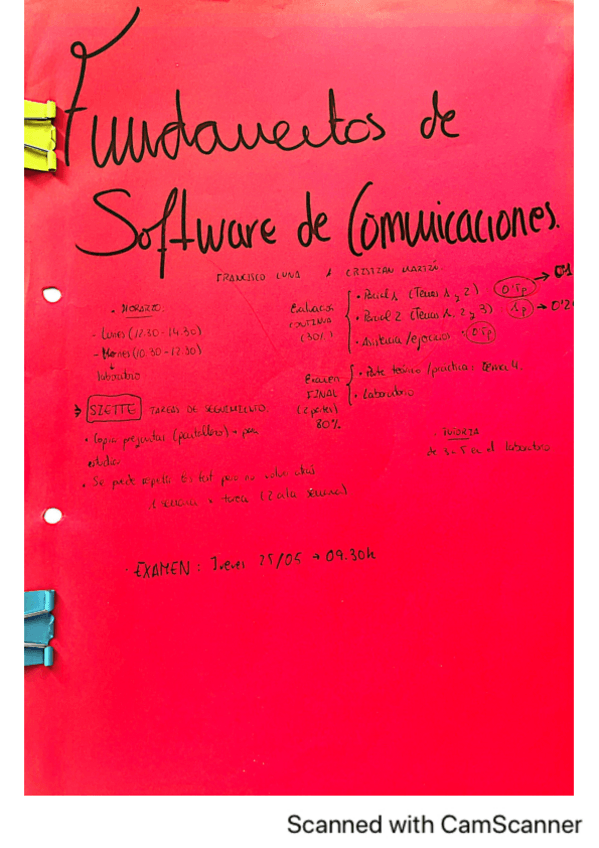 Fundamentos de
Software de Comunicaciones.
FRANCISCO LUNA
CRISTIAN MARTÍN
• HORARIO:
- Lunes (12.30 - 14.30)
(10.30 - 12.30)
laboratorio
Evaluación
CONTINUA
(30%)
• Parcial 1 (Temas 1 y 2) 0'5p →
• Parcial 2 (Temas 1, 2 y 3) 1p → 0'2
• Asistencia/ejercicios → 0'5p
Examen
FINAL
(2 partes)
80%
• Parte teórico/práctica: Tema 4.
• Laboratorio
→ SIETTE TAREAS DE SEGUIMIENTO:
• Copia preguntas (pantallazo) → para
estudiar
• Se puede repetir los test pero no vale atrás
1 semana x tarea (2 a la semana)
TUTORÍA
en el laboratorio
• EXAMEN: Jueves 25/05 → 09.30h
Scanned with CamScanner